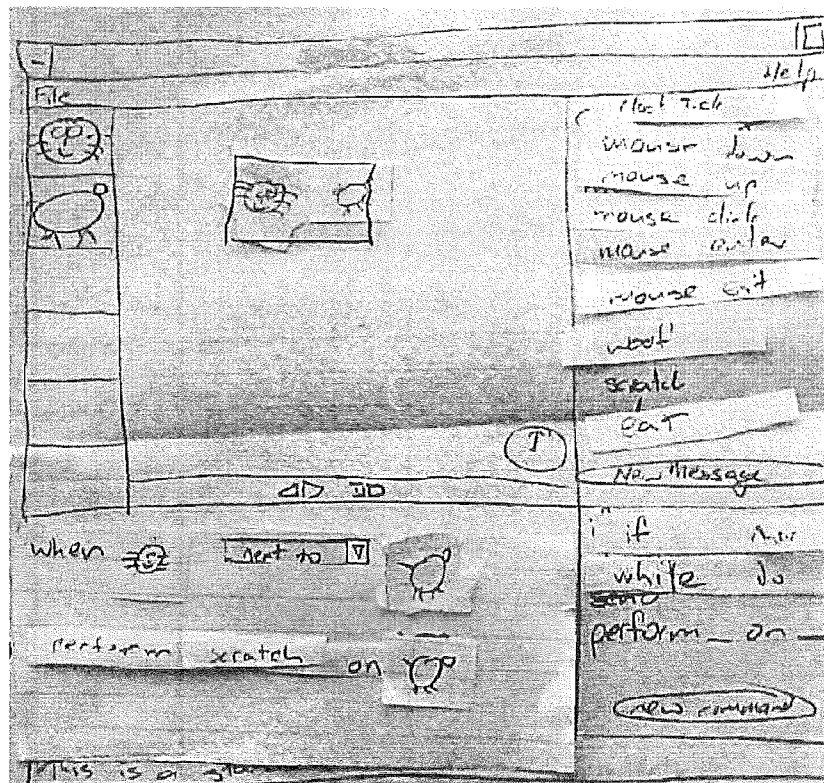 Help
File
mouse down
mouse up
mouse click
mouse enter
mouse exit
woof
scratch
eat
New Message
if
while do
send
perform _ on _
new command
when next to
perform scratch on
This is a